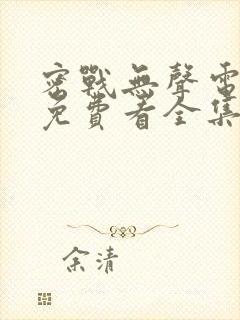 密戰無聲電
免費看全集
余清